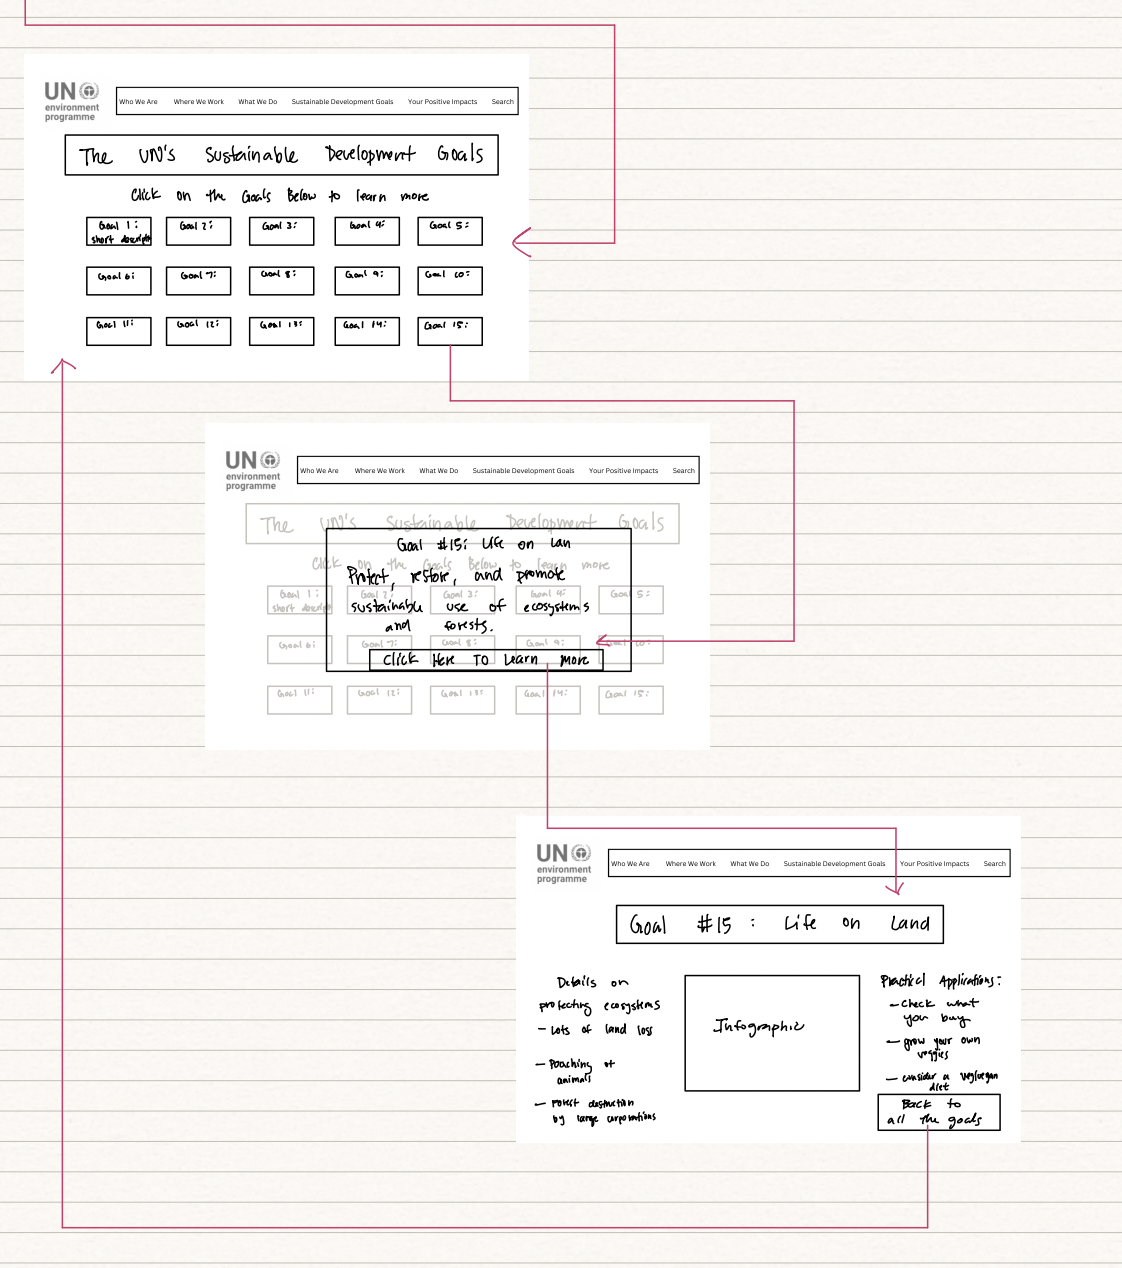 UN
environment
programme
Who We Are Where We Work What We Do Sustainable Development Goals Your Positive Impacts Search
The UN's Sustainable Development Goals
Click on the Goals Below to learn more
Goal 1: Goal 2: Goal 3: Goal 4: Goal 5:
short descript
Goal 6: Goal 7: Goal 8: Goal 9: Goal 10:
Goal 11: Goal 12: Goal 13: Goal 14: Goal 15:
UN
environment
programme
Who We Are Where We Work What We Do Sustainable Development Goals Your Positive Impacts Search
The UN's Sustainable Development Goals
Goal #15: Life on Lan
Click on the Goals Below to learn more
Protect, restore, and promote
Goal 1: Goal 2: Goal 3: Goal 4: Goal 5:
short descript
sustainable use of ecosystems
and forests.
Goal 6: Goal 7: Goal 8: Goal 9: Goal 10:
Click Here To Learn More
Goal 11: Goal 12: Goal 13: Goal 14: Goal 15:
UN
environment
programme
Who We Are Where We Work What We Do Sustainable Development Goals Your Positive Impacts Search
Goal #15: Life on Land
Details on
protecting ecosystems
- Lots of land loss
- Poaching of
animals
- Forest destruction
by large corporations
Infographic
Practical Applications:
- Check what
you buy
- grow your own
veggies
- consider a veg/vegan
diet
Back to
all the goals